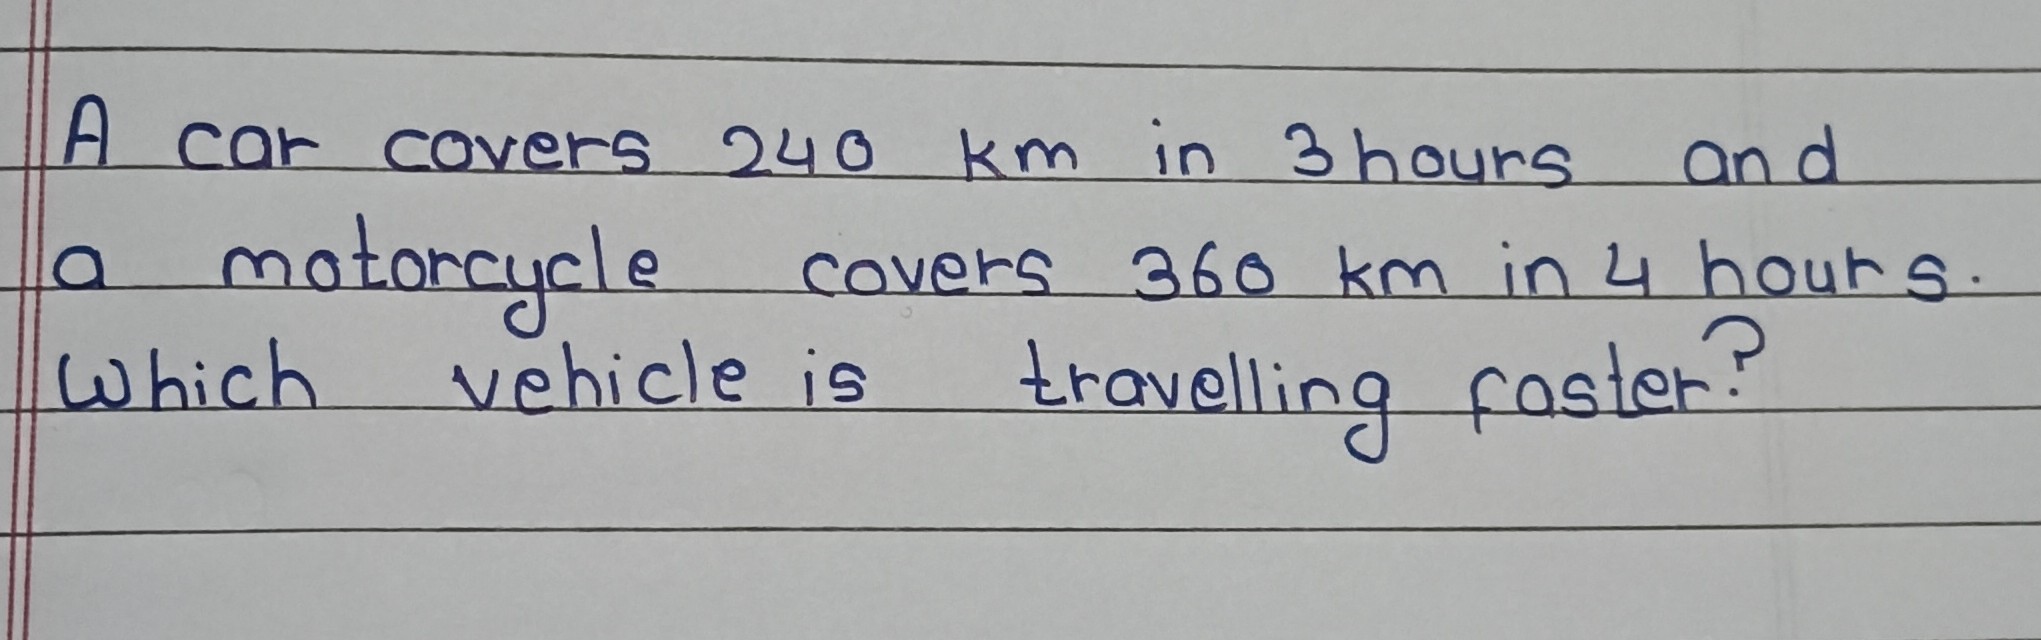 A car covers 240 km in 3 hours and
a motorcycle covers 360 km in 4 hours.
Which vehicle is travelling faster?